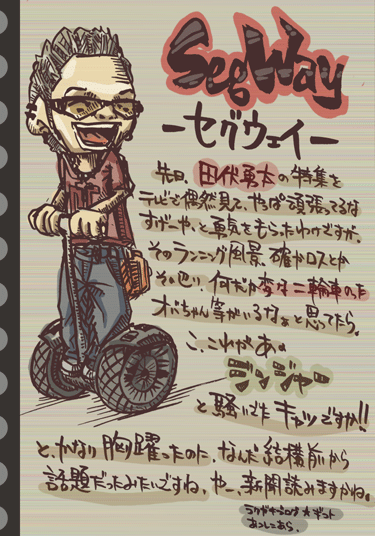 SegWay
ーセグウェイー
先日、田伏勇太の特集を
テレビで偶然見て、やっぱ頑張ってるな
すげーや、と勇気をもらったわけですが、
そのランニング風景、確かロスとか
その辺り、何だか変な二輪車のった
オバちゃん等がいるなぁと思てたら。
こ、これがあの
ジンジャー
と騒いでたキャツですか!!
と、かなり胸躍ったのに、なんだ結構前から
話題だったみたいですね、やー、新聞読みますかね。